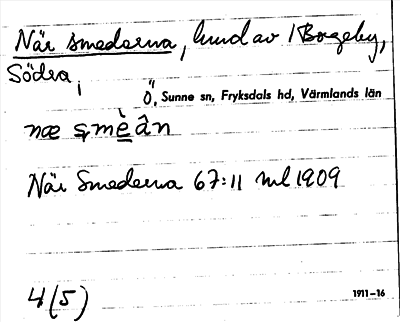 När smederna, hmd av 1 Borgeby,
Södra,
Ö. Sunne sn, Fryksdals hd, Värmlands län
næ smèân
När Smederna 67:11 ml 1909
4(5)
1911-16